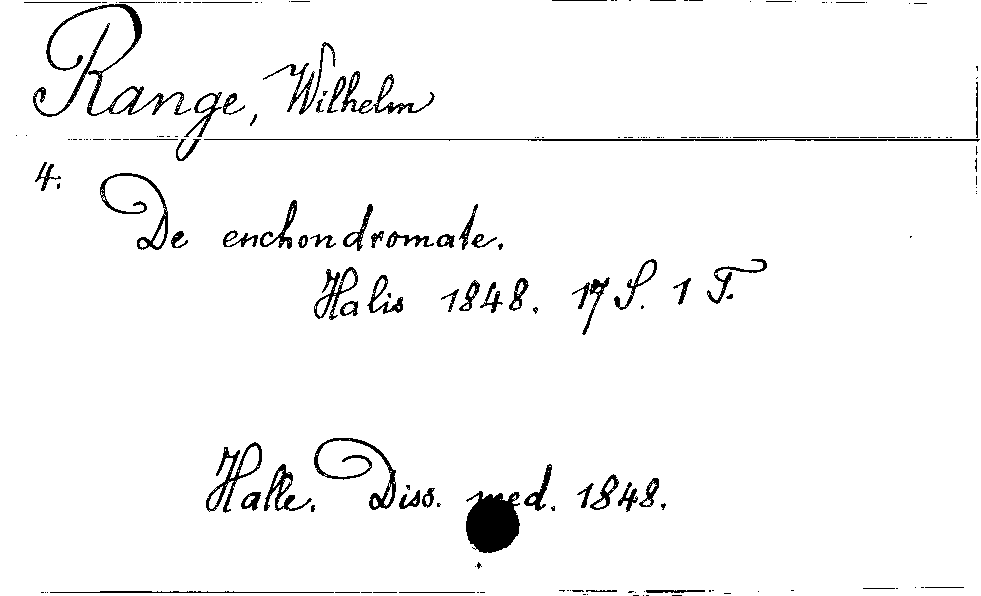 Range, Wilhelm
4.
De enchondromate.
Halis 1848. 17 S. 1 T.
Halle. Diss. med. 1848.